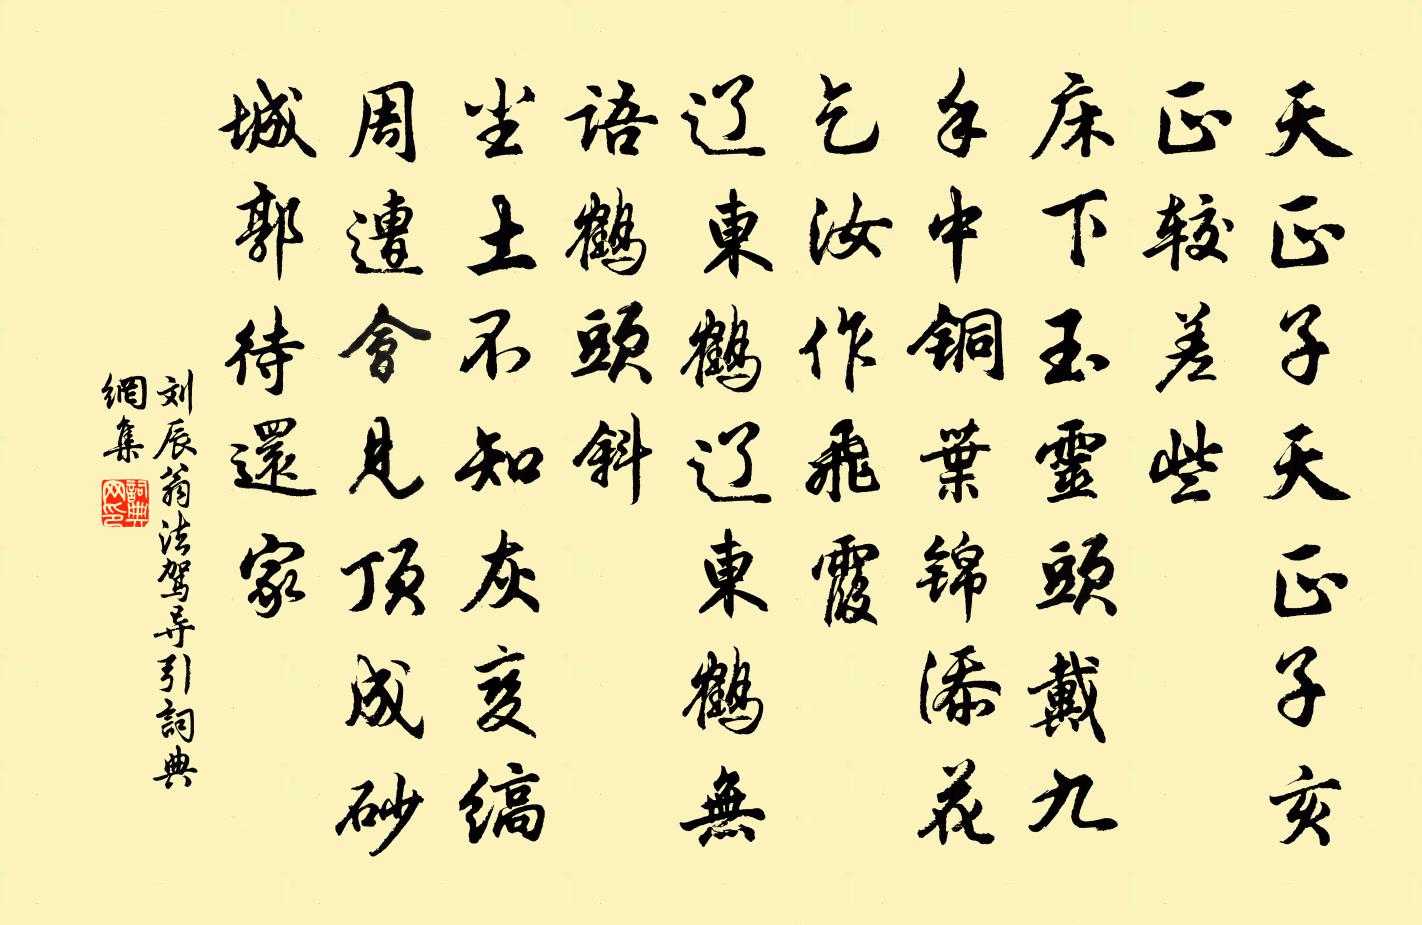 天正子天正子亥
正较差些
床下玉靈頭戴九
手中銅葉锦添花
乞汝作飛霞
辽東鶴辽東鶴無
語鶴頭斜
坐土不知灰变缟
周遭會見頂成砂
城郭待還家
刘辰翁法驾导引詞典
網集
詞典
网印